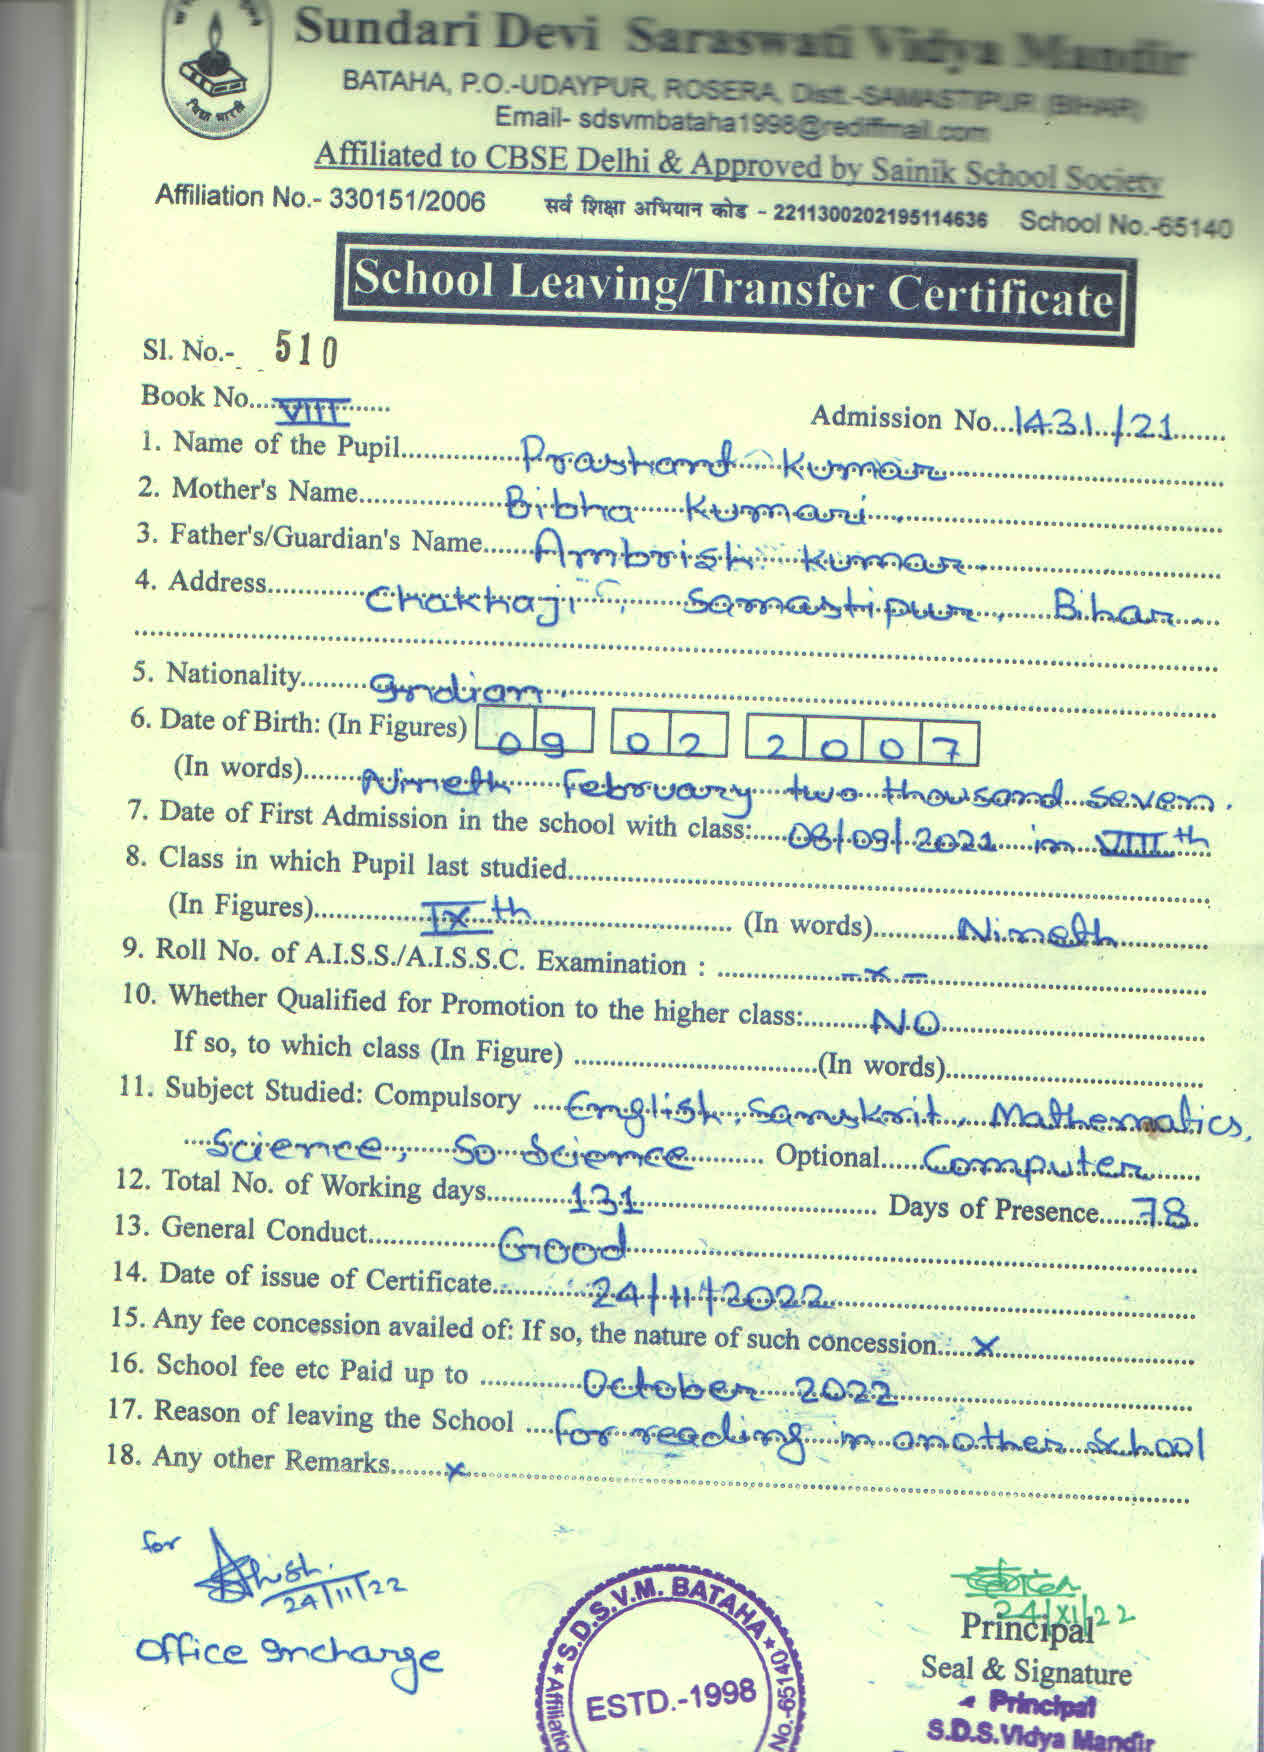 Sundari Devi Saraswati Vidya Mandir
BATAHA, P.O.-UDAYPUR, ROSERA, Distt.-SAMASTIPUR (BIHAR)
Email- sdsvmbataha1998@rediffmail.com
Affiliated to CBSE Delhi & Approved by Sainik School Society
Affiliation No.- 330151/2006 सर्व शिक्षा अभियान कोड - 2211300202195114636 School No.-65140
School Leaving/Transfer Certificate
Sl. No.- 510
Book No....VIII......
Admission No...1431/21.......
1. Name of the Pupil...............Prashant Kumar...............
2. Mother's Name...............Bibha Kumari...............
3. Father's/Guardian's Name.......Ambrish Kumar...............
4. Address............Chakhaji, Samastipur, Bihar......
5. Nationality.........Indian...............
6. Date of Birth: (In Figures) 09 02 2007
(In words)........Nineth February two thousand seven.
7. Date of First Admission in the school with class:.....08/09/2021 in VIIIth
8. Class in which Pupil last studied...............
(In Figures)...............IXth............... (In words)...........Nineth............
9. Roll No. of A.I.S.S./A.I.S.S.C. Examination : ...............-x-...............
10. Whether Qualified for Promotion to the higher class:.........NO...............
If so, to which class (In Figure) ...............(In words)...............
11. Subject Studied: Compulsory ....English, Sanskrit, Mathematics,
Science, So Science.......... Optional......Computer......
12. Total No. of Working days............131............... Days of Presence.......78.
13. General Conduct...............Good...............
14. Date of issue of Certificate............24/11/2022...............
15. Any fee concession availed of: If so, the nature of such concession.....x...............
16. School fee etc Paid up to ............October 2022...............
17. Reason of leaving the School ....for reading in another School
18. Any other Remarks........x...............
for
24/11/22
Office Incharge
S.D.S.V.M. BATAHA
ESTD.-1998
No.-65140
24/XI/22
Principal
Seal & Signature
Principal
S.D.S.Vidya Mandir